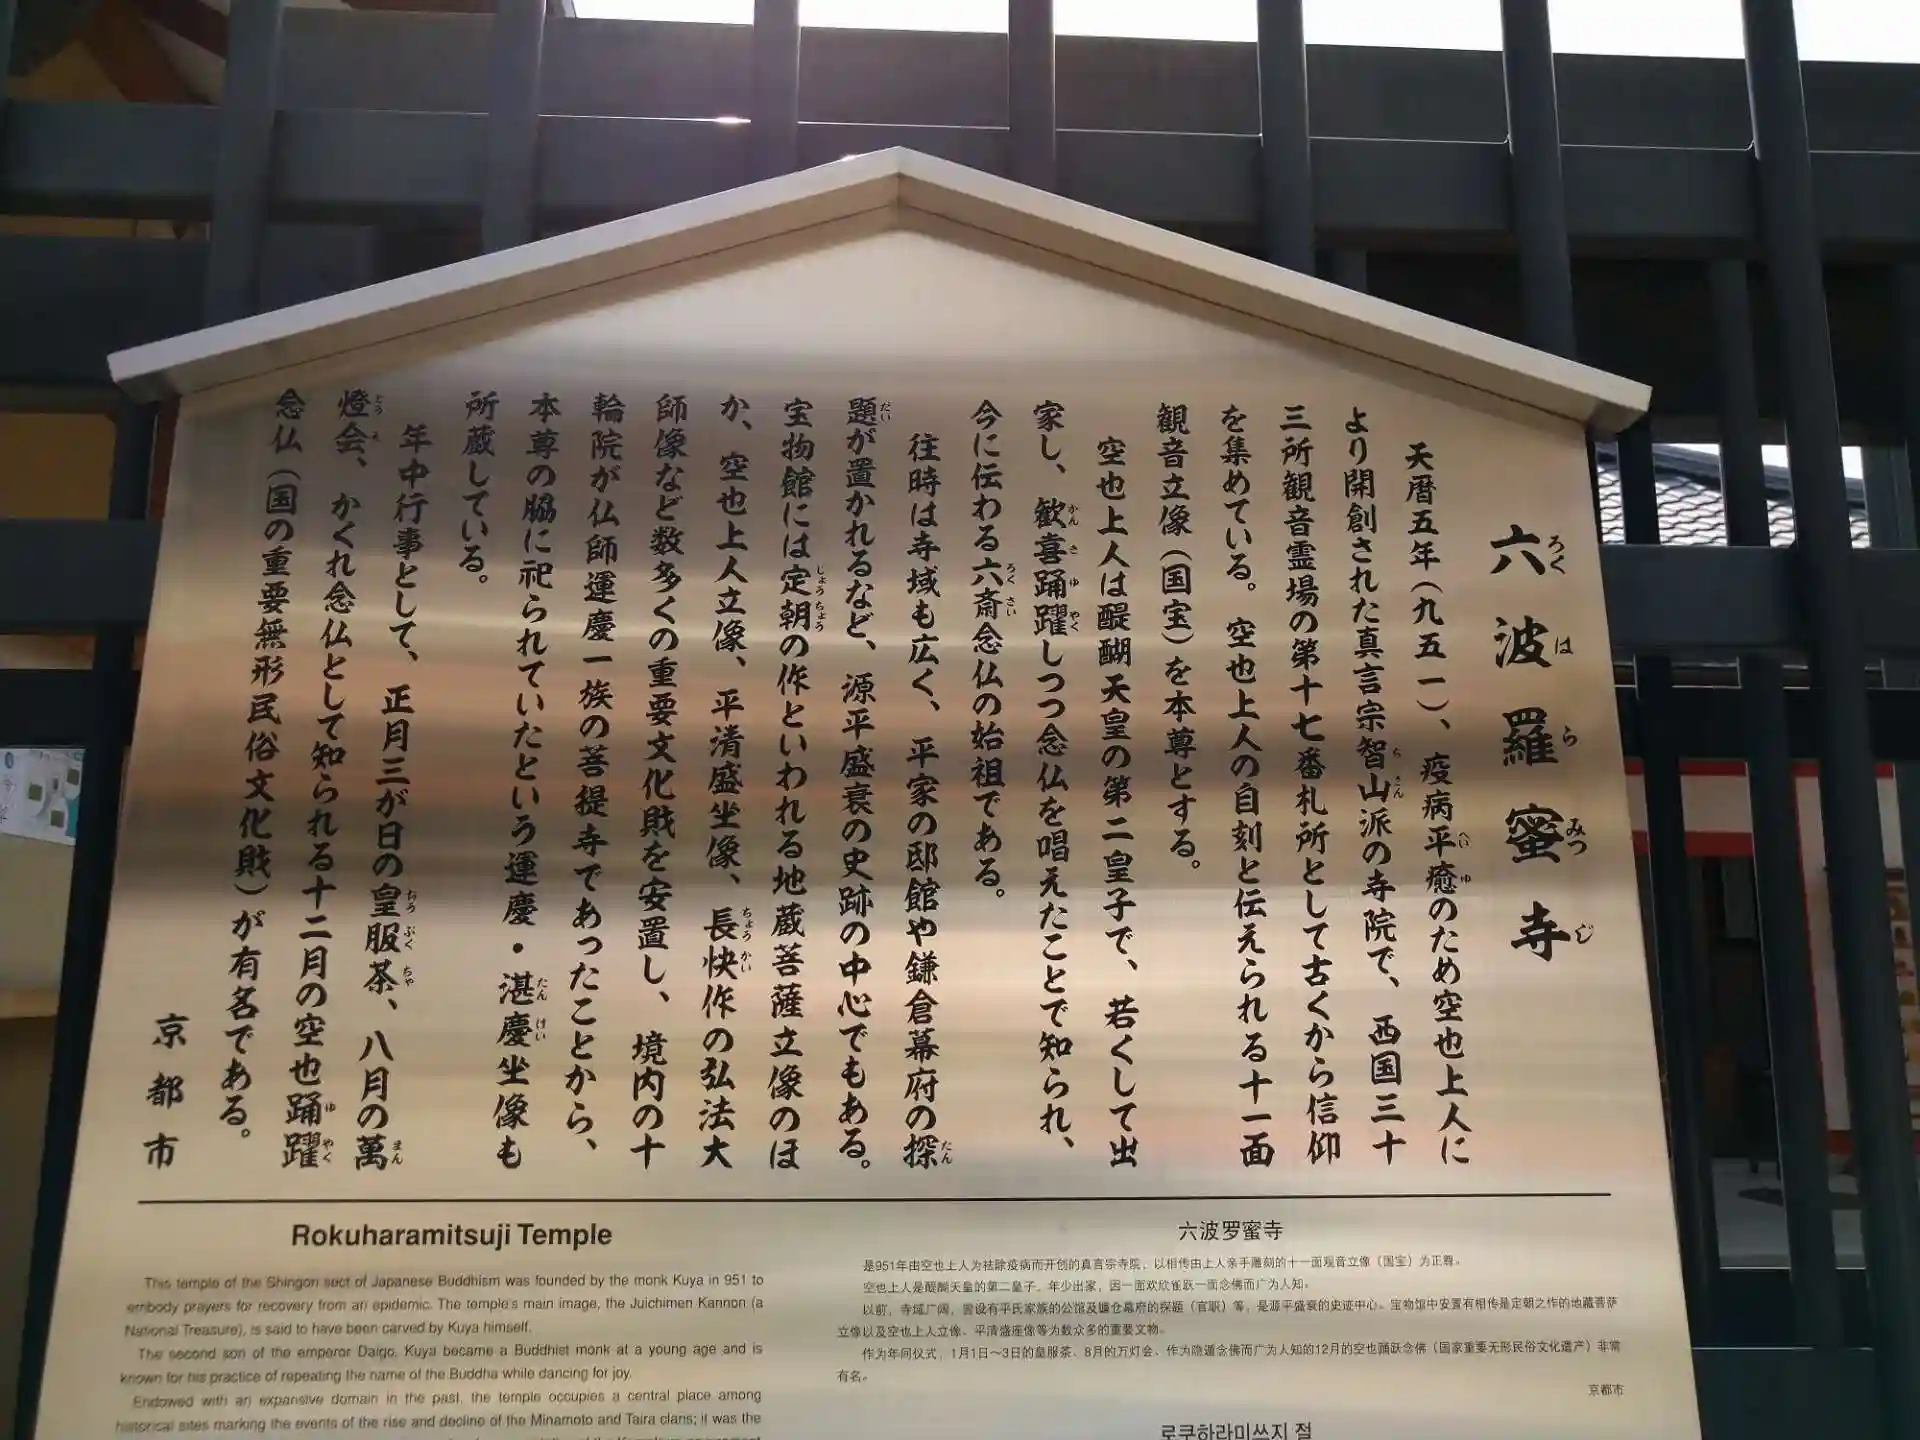 六波羅蜜寺
ろくはらみつじ
天暦五年（九五一）、疫病平癒のため空也上人に
より開創された真言宗智山派の寺院で、西国三十
三所観音霊場の第十七番札所として古くから信仰
を集めている。空也上人の自刻と伝えられる十一面
観音立像（国宝）を本尊とする。
空也上人は醍醐天皇の第二皇子で、若くして出
家し、歓喜踊躍しつつ念仏を唱えたことで知られ、
今に伝わる六斎念仏の始祖である。
往時は寺域も広く、平家の邸館や鎌倉幕府の探
題が置かれるなど、源平盛衰の史跡の中心でもある。
宝物館には定朝の作といわれる地蔵菩薩立像のほ
か、空也上人立像、平清盛坐像、長快作の弘法大
師像など数多くの重要文化財を安置し、境内の十
輪院が仏師運慶一族の菩提寺であったことから、
本尊の脇に祀られていたという運慶・湛慶坐像も
所蔵している。
年中行事として、正月三が日の皇服茶、八月の萬
燈会、かくれ念仏として知られる十二月の空也踊躍
念仏（国の重要無形民俗文化財）が有名である。
京都市
Rokuharamitsuji Temple
This temple of the Shingon sect of Japanese Buddhism was founded by the monk Kuya in 951 to
embody prayers for recovery from an epidemic. The temple's main image, the Juichimen Kannon (a
National Treasure), is said to have been carved by Kuya himself.
The second son of the emperor Daigo, Kuya became a Buddhist monk at a young age and is
known for his practice of repeating the name of the Buddha while dancing for joy.
Endowed with an expansive domain in the past, the temple occupies a central place among
historical sites marking the events of the rise and decline of the Minamoto and Taira clans; it was the
六波罗蜜寺
是951年由空也上人为祛除疫病而开创的真言宗寺院，以相传由上人亲手雕刻的十一面观音立像（国宝）为正尊。
空也上人是醍醐天皇的第二皇子，年少出家，因一面欢欣雀跃一面念佛而广为人知。
以前，寺域广阔，曾设有平氏家族的公馆及镰仓幕府的探题（官职）等，是源平盛衰的史迹中心。宝物馆中安置有相传是定朝之作的地藏菩萨
立像以及空也上人立像、平清盛座像等为数众多的重要文物。
作为年间仪式，1月1日～3日的皇服茶、8月的万灯会、作为隐遁念佛而广为人知的12月的空也踊跃念佛（国家重要无形民俗文化遗产）非常
有名。
京都市
로쿠하라미쓰지 절